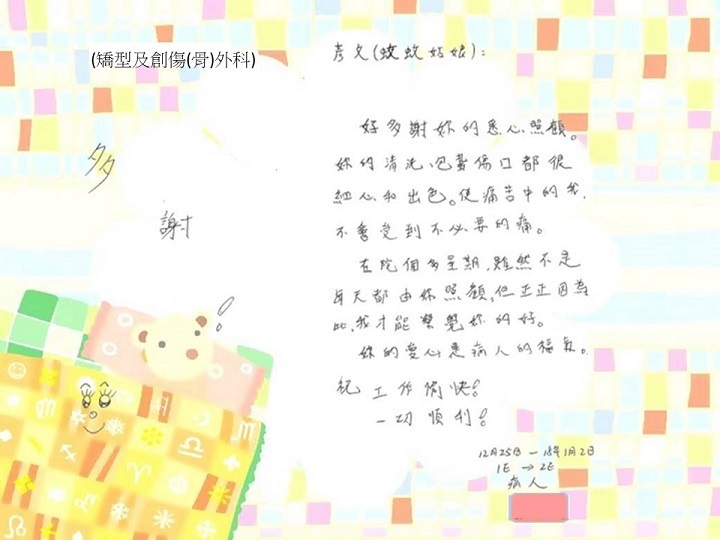 (矯型及創傷(骨)外科)
多
謝
!
彥文(蚊蚊姑娘):
好多謝妳的悉心照顧。
妳的清洗、包紮傷口都很
細心和出色。使痛苦中的我,
不會受到不必要的痛。
在院個多星期,雖然不是
每天都由妳照顧,但正正因為
此,我才能察覺妳的好。
妳的愛心是病人的福氣。
祝 工作愉快!
一切順利!
12月25日 — 18年1月2日
1E → 2E
病人